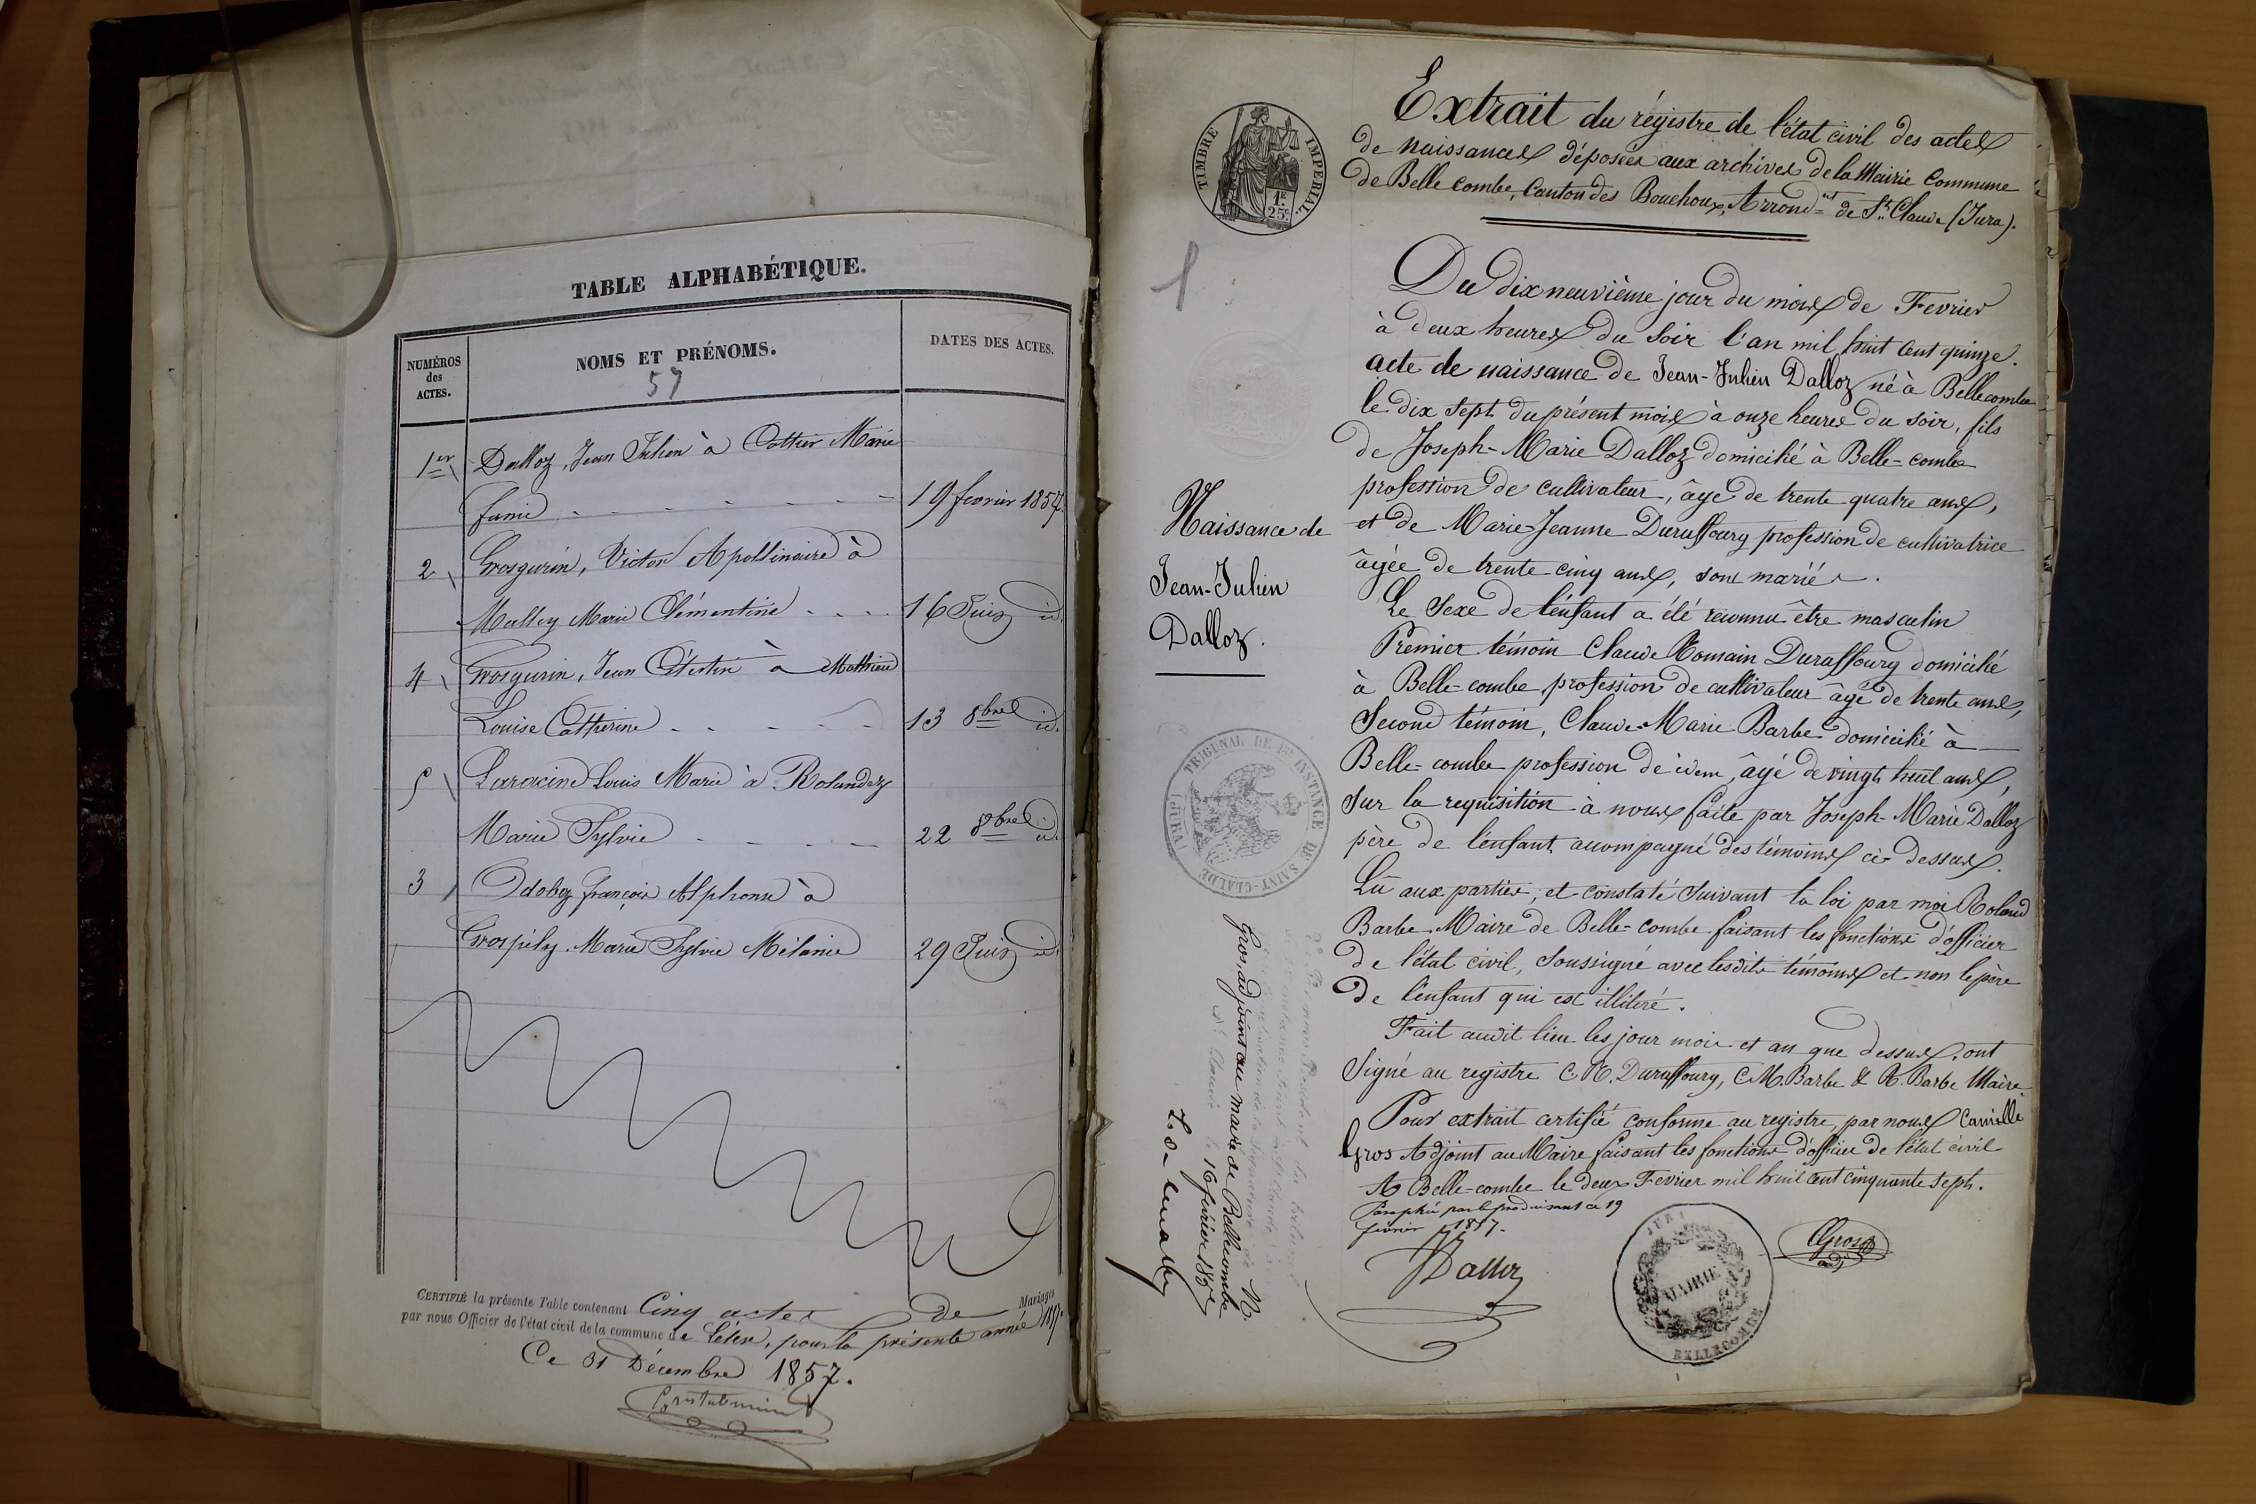 TABLE ALPHABÉTIQUE.
NUMÉROS
des
ACTES.
NOMS ET PRÉNOMS.
57
DATES DES ACTES.
1er Dalloz, Jean Julien à Cottier Marie
funie 19 fevrier 1857.
2 Grosgurin, Victor Apollinaire à
Malley Marie Clémentine 16 Juin id.
4 Grosgurin, Jean Célestin à Mathieu
Louise Catherine 13 8bre id.
5 Laracine Louis Marie à Rolandez
Marie Sylvie 22 8bre id.
3 Odobez françois Alphonse à
Grospély Marie Sylvie Mélanie 29 Juin id.
CERTIFIÉ la présente Table contenant Cinq actes de Mariages
par nous Officier de l'état civil de la commune de Lélex, pour la présente année 1857.
Ce 31 Décembre 1857.
TIMBRE IMPÉRIAL.
1F.
25c
Extrait du régistre de l'état civil des actes
de naissances déposées aux archives de la Mairie Commune
de Belle combe, Canton des Bouchoux, Arrondnt de St Claude (Jura).
1
Du dix neuvième jour du mois de Fevrier
à deux heures du soir l'an mil huit cent quinze.
acte de naissance de Jean-Julien Dalloz né à Bellecombe
le dix sept du présent mois à onze heures du soir, fils
de Joseph-Marie Dalloz domicilié à Belle-combe
profession de cultivateur, âgé de trente quatre ans,
et de Marie-Jeanne Duraffourg profession de cultivatrice
âgée de trente-cinq ans, sont mariés.
Naissance de
Jean-Julien
Dalloz.
Le Sexe de l'enfant a élé reconnu être masculin
Premier témoin Claude Romain Duraffourg domicilié
à Belle-combe profession de cultivateur âgé de trente ans,
Second témoin, Claude-Marie Barbe domicilié à
Belle-combe profession de idem, âgé de vingt huit ans,
sur la requisition à nous faite par Joseph-Marie Dalloz
père de l'enfant accompagné des témoins ci-dessus.
Lû aux parties, et constaté suivant la loi par moi Roland
Barbe Maire de Belle-combe faisant les fonctions d'officier
de l'état civil, soussigné avec lesdits témoins et non le père
de l'enfant qui est illitéré.
Fait audit lieu les jour mois et an que dessus, ont
Signé au registre C. R. Duraffourg, C. M. Barbe & R. Barbe Maire
Pour extrait certifié conforme au registre, par nous Camille
Gros Adjoint au Maire faisant les fonctions d'officier de l'état civil
A Belle-combe le deux Fevrier mil huit cent cinquante sept.
Paraphé par le produisant ce 19
février 1857.
JDalloz
CGros
adj
JURA
MAIRIE
BELLECOMBE
TRIBUNAL DE 1RE INSTANCE DE SAINT-CLAUDE (JURA)
Gros, adjoint au maire de Bellecombe
St Claude le 16 février 1857